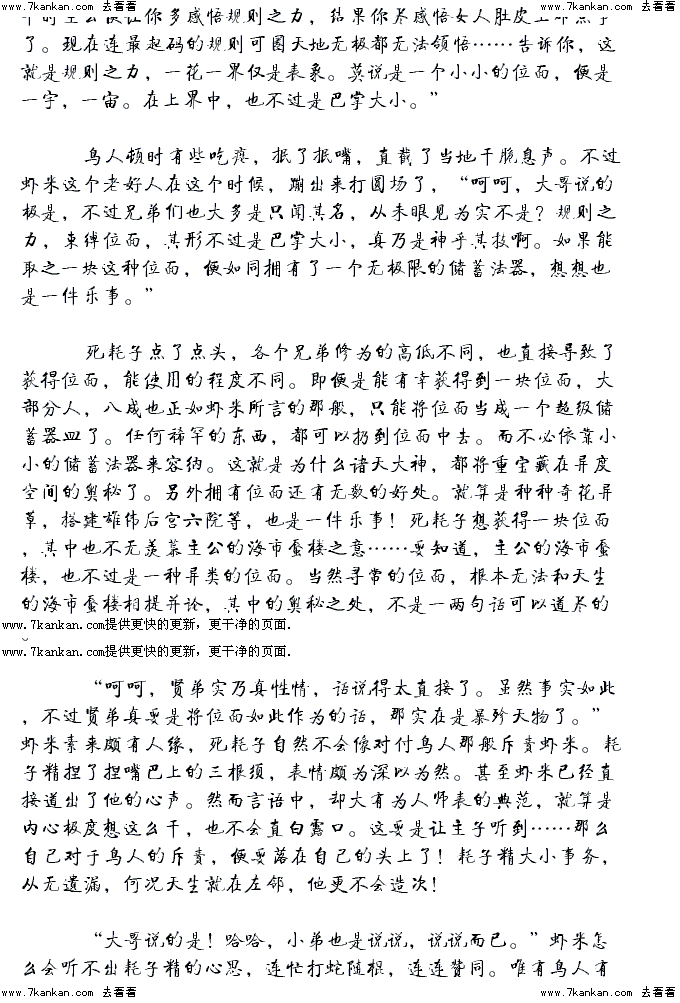 www.7kankan.com 去看看 www.7kankan.com 去看看 www.7kankan.com 去看看
了。现在连最起码的规则可图天地无极都无法领悟……告诉你，这
就是规则之力，一花一界仅是表象。莫说是一个小小的位面，便是
一宇，一宙。在上界中，也不过是巴掌大小。”
鸟人顿时有些吃疼，抿了抿嘴，直截了当地干脆息声。不过
虾米这个老好人在这个时候，蹦出来打圆场了，“呵呵，大哥说的
极是，不过兄弟们也大多是只闻其名，从未眼见为实不是？规则之
力，束缚位面，其形不过是巴掌大小，真乃是神乎其技啊。如果能
取之一块这种位面，便如同拥有了一个无极限的储蓄法器，想想也
是一件乐事。”
死耗子点了点头，各个兄弟修为的高低不同，也直接导致了
获得位面，能使用的程度不同。即便是能有幸获得到一块位面，大
部分人，八成也正如虾米所言的那般，只能将位面当成一个超级储
蓄器皿了。任何稀罕的东西，都可以扔到位面中去。而不必依靠小
小的储蓄法器来容纳。这就是为什么诸天大神，都将重宝藏在异度
空间的奥秘了。另外拥有位面还有无数的好处。就算是种种奇花异
草，搭建雄伟后宫六院等，也是一件乐事！死耗子想获得一块位面
，其中也不无羡慕主公的海市蜃楼之意……要知道，主公的海市蜃
楼，也不过是一种异类的位面。当然寻常的位面，根本无法和天生
的海市蜃楼相提并论，其中的奥秘之处，不是一两句话可以道尽的
www.7kankan.com提供更快的更新，更干净的页面.
。
www.7kankan.com提供更快的更新，更干净的页面.
“呵呵，贤弟实乃真性情，话说得太直接了。虽然事实如此
，不过贤弟真要是将位面如此作为的话，那实在是暴殄天物了。”
虾米素来颇有人缘，死耗子自然不会像对付鸟人那般斥责虾米。耗
子精捏了捏嘴巴上的三根须，表情颇为深以为然。甚至虾米已经直
接道出了他的心声。然而言语中，却大有为人师表的典范，就算是
内心极度想这么干，也不会直白露口。这要是让主子听到……那么
自己对于鸟人的斥责，便要落在自己的头上了！耗子精大小事务，
从无遗漏，何况天生就在左邻，他更不会造次！
“大哥说的是！哈哈，小弟也是说说，说说而已。”虾米怎
么会听不出耗子精的心思，连忙打蛇随棍，连连赞同。唯有鸟人有
www.7kankan.com 去看看 www.7kankan.com 去看看 www.7kankan.com 去看看